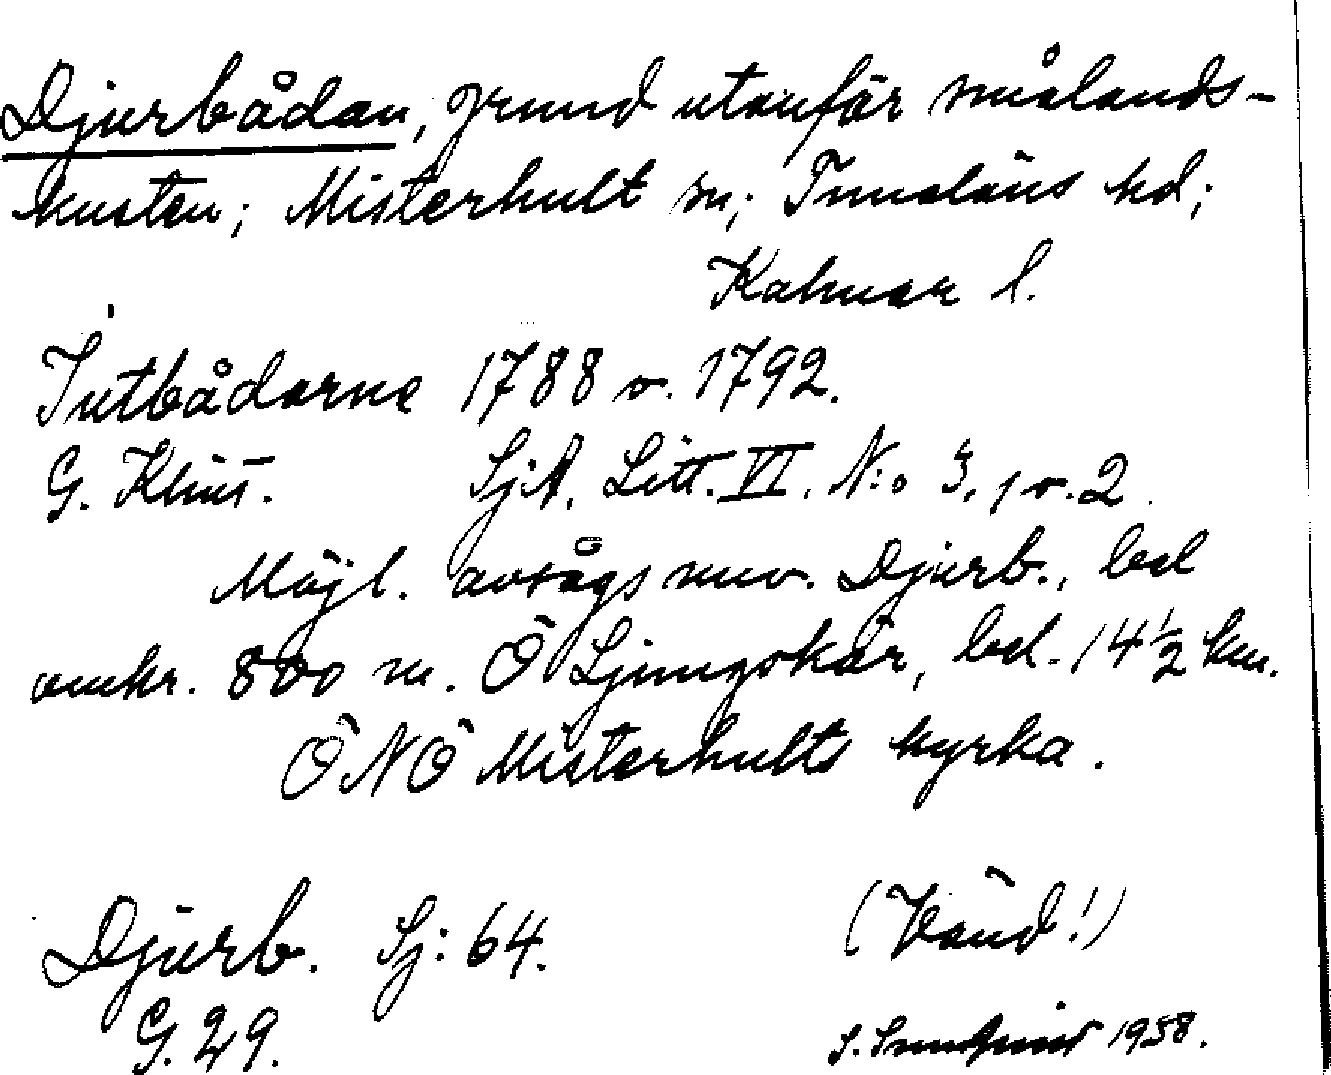 Djurbådan, grund utanför smålands-
kusten; Misterhult sn; Tunaläns hd;
Kalmar l.
Jutbådarne 1788 o. 1792.
G. Klint. SjA. Litt. VI. N:o 3, 1 o. 2.
Möjl. avsågs nuv. Djurb., bel
omkr. 800 m. Ö Ljungskär, bel. 14 ½ km.
ÖNÖ Misterhults kyrka.
Djurb. Sj: 64. (Vänd!)
G. 29. 1958.